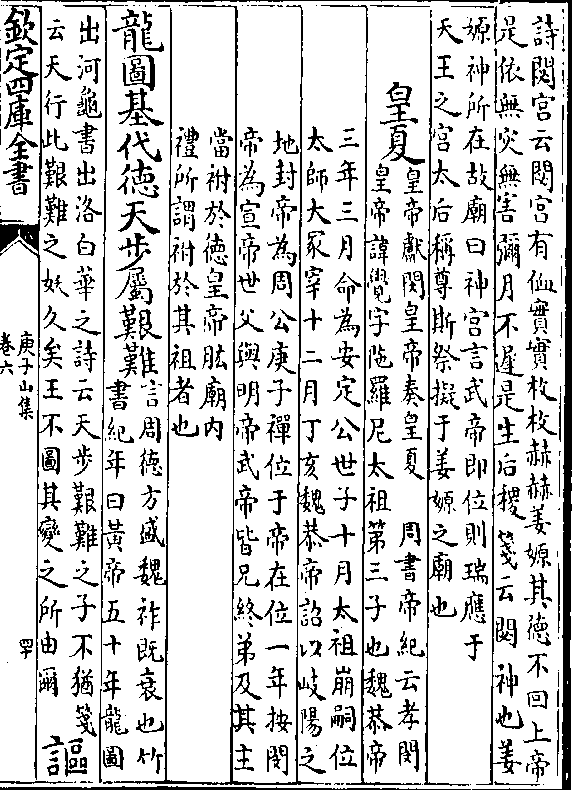 詩閟宮云閟宮有侐實實枚枚赫赫姜嫄其德不回上帝
是依無災無害彌月不遲是生后稷箋云閟神也姜
嫄神所在故廟曰神宮言武帝即位則瑞應于
天王之宮太后稱尊斯祭擬于姜嫄之廟也
皇夏皇帝獻閔皇帝奏皇夏 周書帝紀云孝閔
皇帝諱覺字陁羅尼太祖第三子也魏恭帝
三年三月命為安定公世子十月太祖崩嗣位
太師大冢宰十二月丁亥魏恭帝詔以岐陽之
地封帝為周公庚子禪位于帝在位一年按閔
帝為宣帝世父與明帝武帝皆兄終弟及其主
當祔於德皇帝肱廟內
禮所謂祔於其祖者也
龍圖基代德天步屬艱難言周德方盛魏祚既衰也竹
書紀年曰黃帝五十年龍圖
出河龜書出洛白華之詩云天步艱難之子不猶箋
云天行此艱難之妖久矣王不圖其變之所由爾
謳
欽定四庫全書
庾子山集
卷六